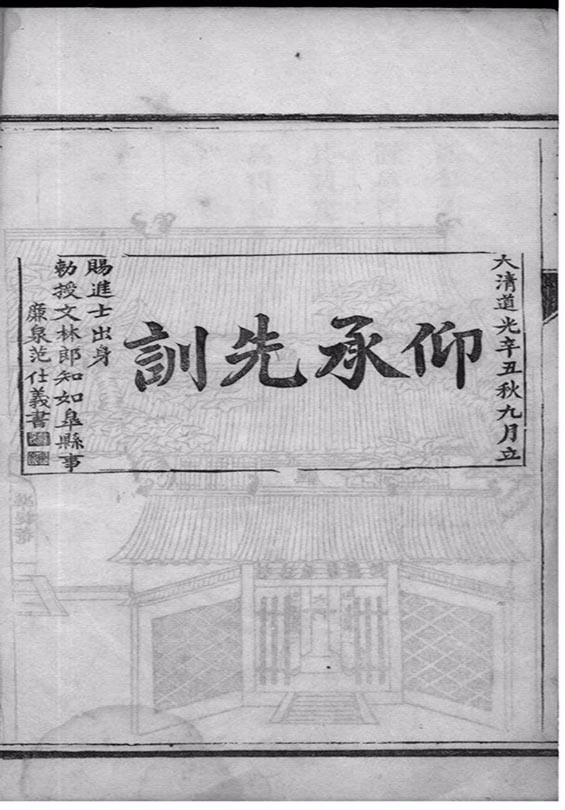 大清道光辛丑秋九月立
仰承先訓
賜進士出身
勅授文林郎知如臯縣事
廉泉范仕義書